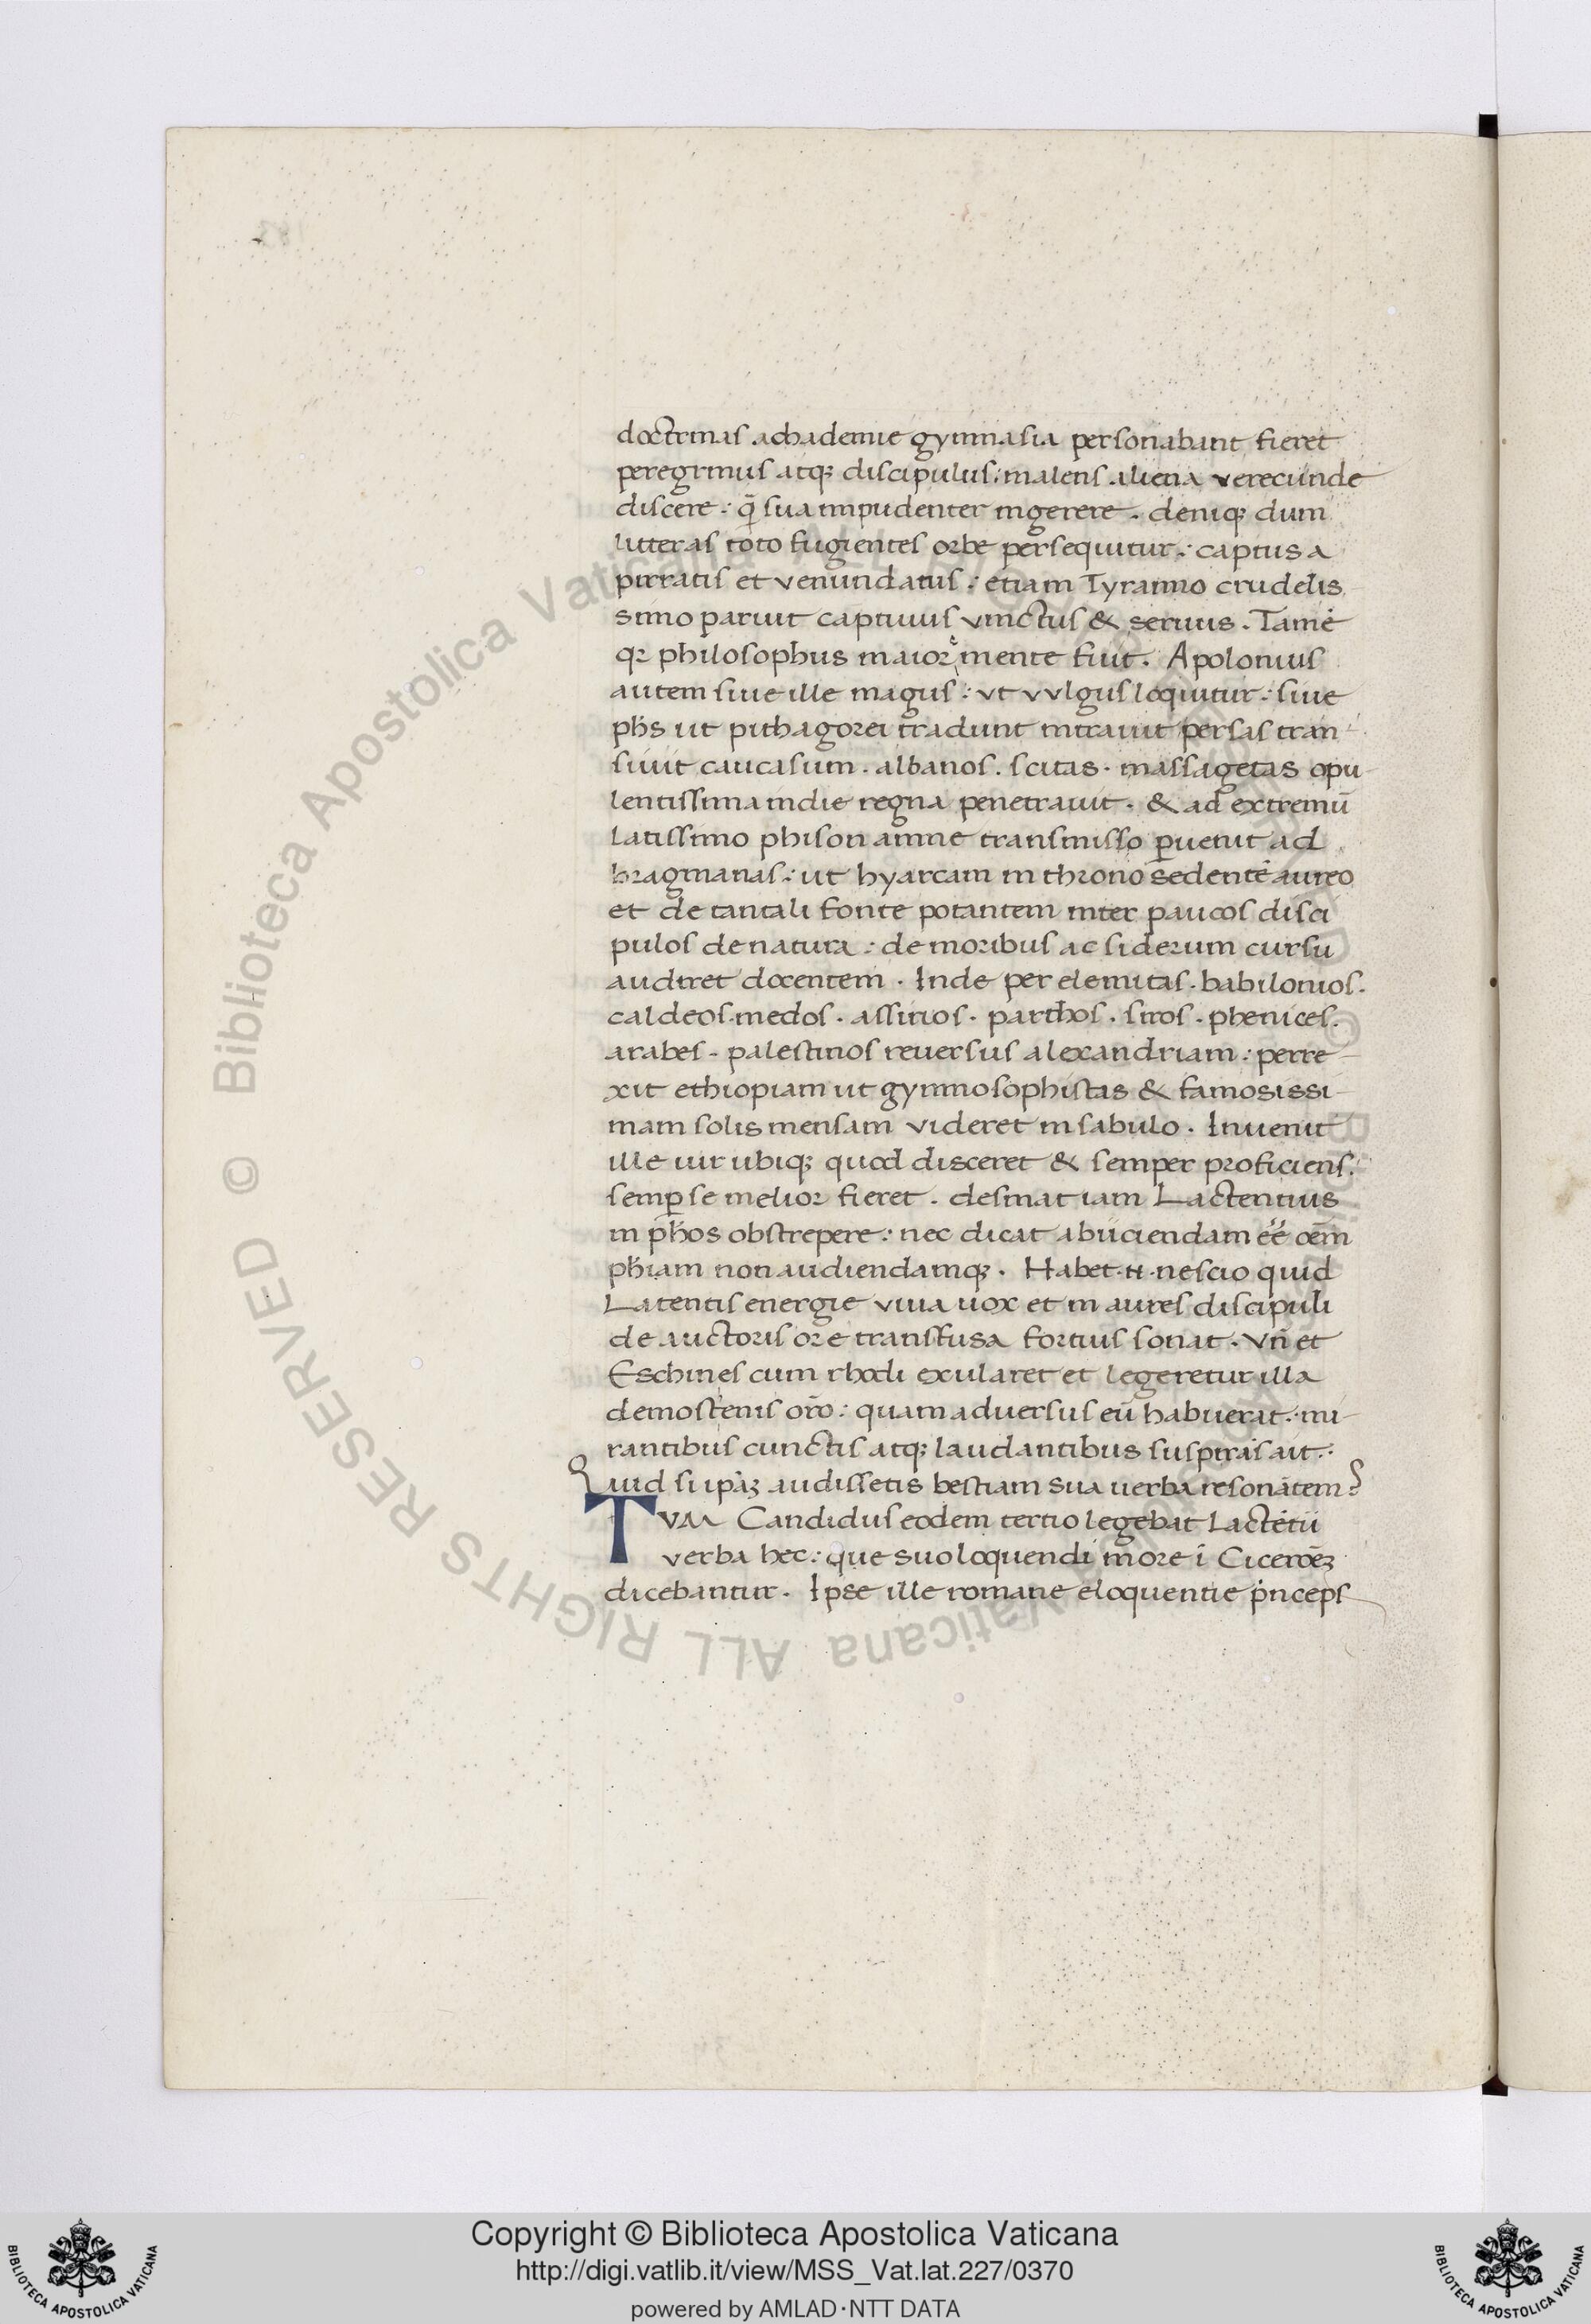 doctrinas achademie gymnasia personabant fieret
peregrinus atq; discipulus: malens aliena verecunde
discere: q̃ sua impudenter ingerere. deniq; dum
litteras toto fugientes orbe persequitur: captus a
pirratis et venundatus: etiam Tyranno crudelis
simo paruit captiuus vinctus & seruus. Tamē
qꝛ philosophus maior ẽmente fuit. Apolonius
autem siue ille magus: vt vulgus loquitur: siue
phs ut pithagorei tradunt intrauit persas tran
siuit caucasum. albanos. scitas. massagetas opu
lentissima indie regna penetrauit. & ad extremū
latissimo phison amne transmisso ꝑuenit ad
bragmanas: ut hyarcam in throno sedentē aureo
et de tantali fonte potantem inter paucos disci
pulos de natura: de moribus ac siderum cursu
audiret docentem. Inde per elemitas. babilonios.
caldeos. medos. assirios. parthos. siros. phenices.
arabes. palestinos reuersus alexandriam: perre
xit ethiopiam ut gymnosophistas & famosissi
mam solis mensam videret in sabulo. Inuenit
ille uir ubiq; quod disceret & semper proficiens.
semꝑ se melior fieret. desinat iam Lactentius
in phōs obstrepere: nec dicat abiiciendam ēē oēm
phiam non audiendamq;. Habet .n. nescio quid
Latentis energie viua uox et in aures discipuli
de auctoris ore transfusa fortius sonat. Vñ et
Eschines cum rhodi exularet et legeretur illa
demostenis orō: quam aduersus eū habuerat: mi
rantibus cunctis atq; laudantibus suspirās ait:
Quid si ipāꝫ audissetis bestiam sua uerba resonātem?
TVM Candidus eodem tertio legebat Lactētii
verba hec: que suo loquendi more ī Ciceroēꝫ
dicebantur. Ipse ille romane eloquentie pͥnceps
© Biblioteca Apostolica Vaticana ALL RIGHTS RESERVED © Biblioteca Apostolica Vaticana ALL RIGHTS RESERVED
Copyright © Biblioteca Apostolica Vaticana
http://digi.vatlib.it/view/MSS_Vat.lat.227/0370
powered by AMLAD·NTT DATA
BIBLIOTECA APOSTOLICA VATICANA
BIBLIOTECA APOSTOLICA VATICANA